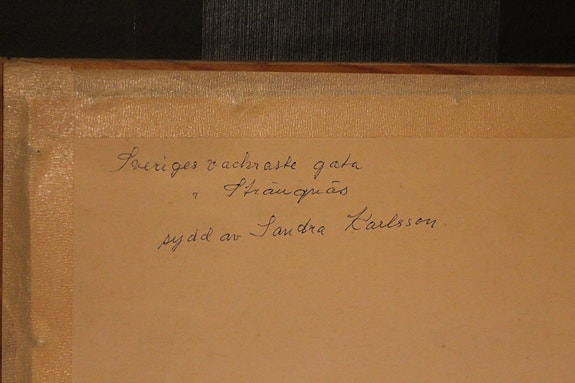 Sveriges vackraste gata
" Strängnäs
sydd av Sandra Karlsson